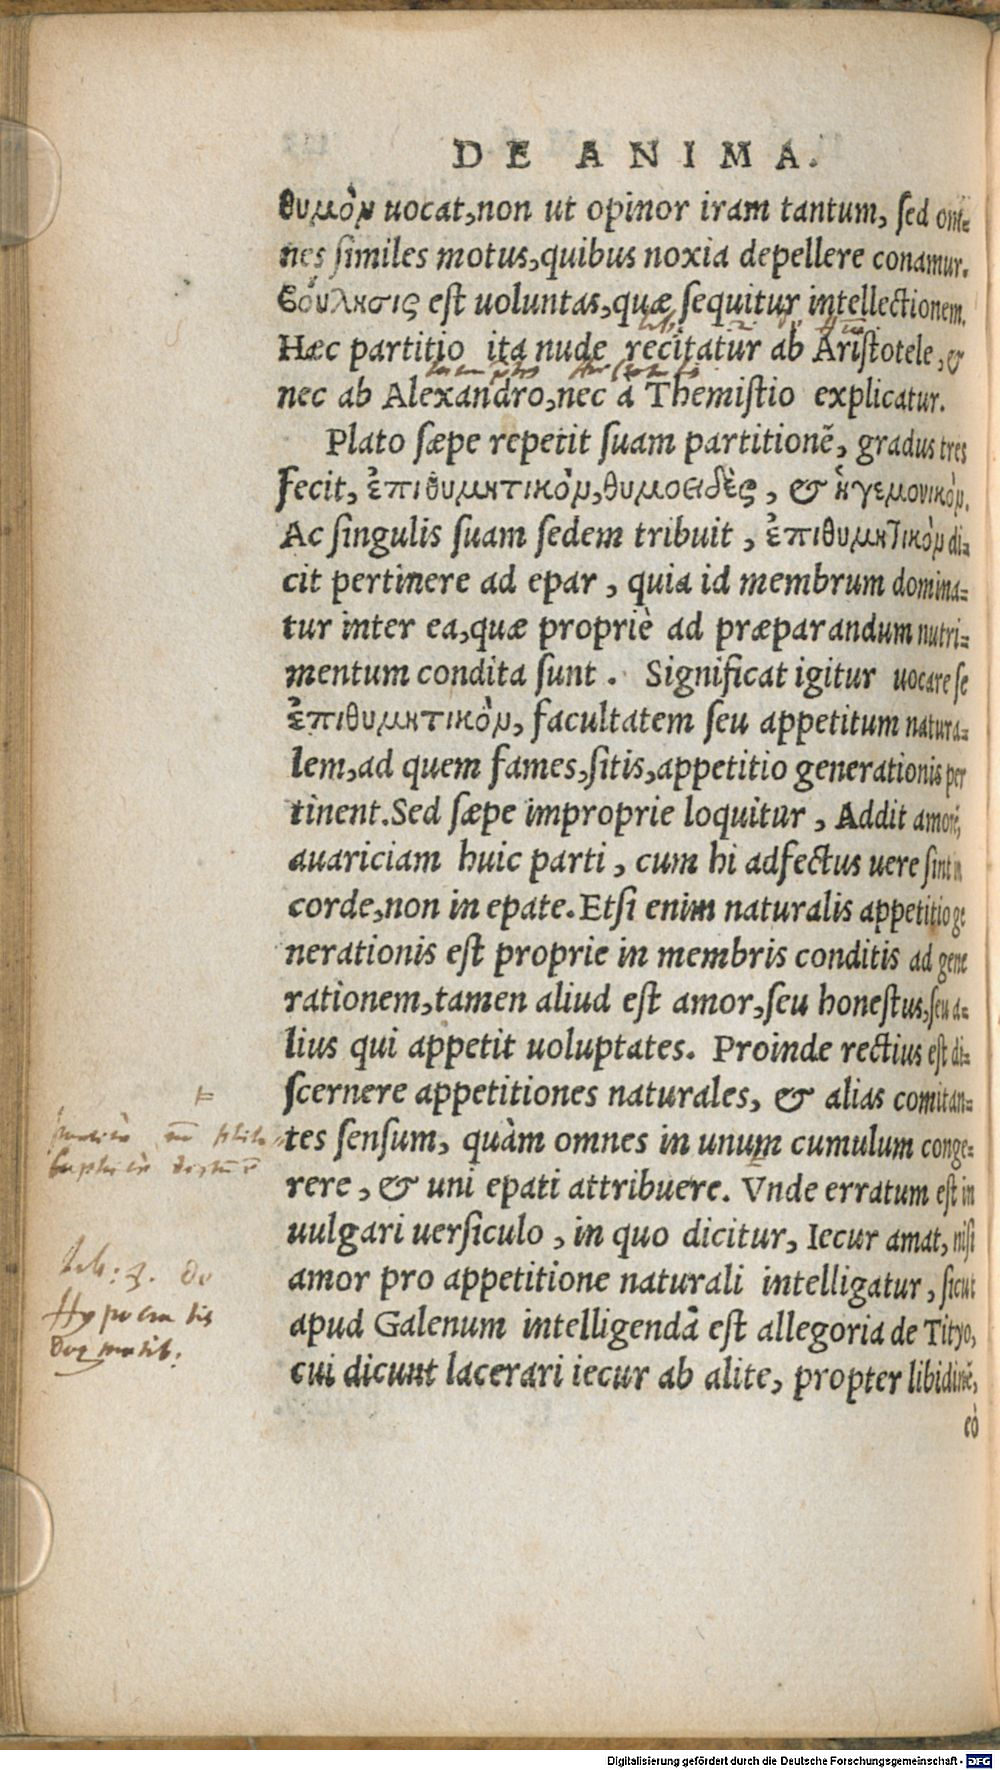 DE ANIMA.
θυμὸν uocat, non ut opinor iram tantum, sed om-
nes similes motus, quibus noxia depellere conamur.
βούλησις est uoluntas, quæ sequitur intellectionem.
Hæc partitio ita nude recitatur ab Aristotele, &
nec ab Alexandro, nec a Themistio explicatur.
Plato sæpe repetit suam partitionẽ, gradus tres
fecit, ἐπιθυμητικὸν, θυμοειδὲς, & ἡγεμονικὸν.
Ac singulis suam sedem tribuit, ἐπιθυμητικὸν di-
cit pertinere ad epar, quia id membrum domina-
tur inter ea, quæ propriè ad præparandum nutri-
mentum condita sunt. Significat igitur uocare se
ἐπιθυμητικὸν, facultatem seu appetitum natura-
lem, ad quem fames, sitis, appetitio generationis per
tinent. Sed sæpe improprie loquitur, Addit amorẽ,
auariciam huic parti, cum hi adfectus uere sint in
corde, non in epate. Etsi enim naturalis appetitio ge
nerationis est proprie in membris conditis ad gene
rationem, tamen aliud est amor, seu honestus, seu a-
lius qui appetit uoluptates. Proinde rectius est di-
scernere appetitiones naturales, & alias comitan-
tes sensum, quàm omnes in unum cumulum conge-
rere, & uni epati attribuere. Vnde erratum est in
uulgari uersiculo, in quo dicitur, Iecur amat, nisi
amor pro appetitione naturali intelligatur, sicut
apud Galenum intelligendã est allegoria de Tityo,
cui dicunt lacerari iecur ab alite, propter libidinẽ,
eò
Lib: 3. de
Hypocra tis
Dogmatib:
Digitalisierung gefördert durch die Deutsche Forschungsgemeinschaft - DFG